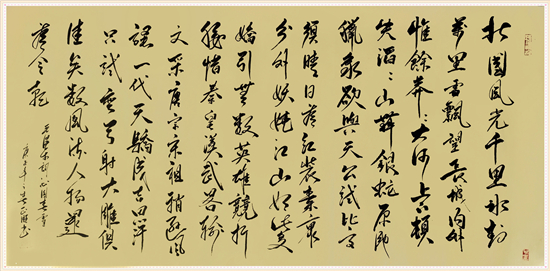 北國風光千里冰封
萬里雪飄望長城內外
惟餘莽々大河上下頓
失滔々山舞銀蛇原馳
蠟象欲與天公試比高
須晴日看紅裝素裹
分外妖嬈江山如此多
嬌引無數英雄競折
腰惜秦皇漢武略輸
文采唐宗宋祖稍遜風
騷一代天驕成吉思汗
只識彎弓射大雕俱
往矣數風流人物還
看今朝
毛澤東詞沁園春雪